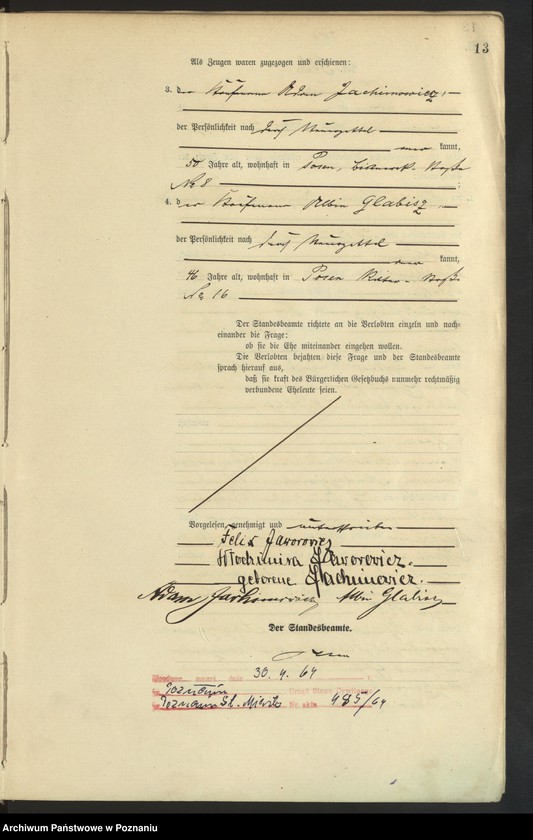 13
Als Zeugen waren zugezogen und erschienen:
3. der Kaufmann Adam Jachimowicz,
der Persönlichkeit nach durch
kannt,
50 Jahre alt, wohnhaft in Posen, Bismarck-Straße
No 8
4. der Kaufmann Albin Glabisz
der Persönlichkeit nach durch
kannt,
46 Jahre alt, wohnhaft in Posen Straße
No 16
Der Standesbeamte richtete an die Verlobten einzeln und nach-
einander die Frage:
ob sie die Ehe miteinander eingehen wollen.
Die Verlobten bejahten diese Frage und der Standesbeamte
sprach hierauf aus,
daß sie kraft des Bürgerlichen Gesetzbuchs nunmehr rechtmäßig
verbundene Eheleute seien.
Vorgelesen, genehmigt und unterschrieben
Felix Jaworowicz
Jaworowicz.
geborene Jachimowicz.
Adam Jachimowicz Albin Glabisz
Der Standesbeamte.
dnia 30.4.64 r.
Poznaniu Urząd Stanu Cywilnego
Poznań St. Miasto Nr. aktu 485/64
Archiwum Państwowe w Poznaniu